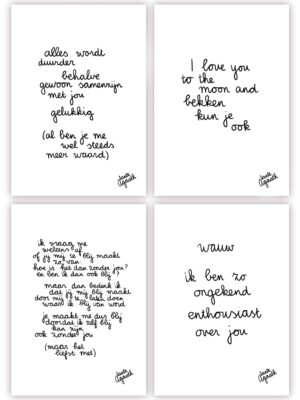 alles wordt
duurder
behalve
gewoon samenzijn
met jou
gelukkig
(al ben je me
wel steeds
meer waard)
I love you
to the
moon and
bekken
kun je
ook
ik vraag me
weleens af
of jij mij te blij maakt
zo van
hoe is het dan zonder jou?
en ben ik dan ook blij?
maar dan bedenk ik
dat jij mij blij maakt
door mij te laten doen
waar ik blij van word
je maakt me dus blij
doordat ik zelf blij
kan zijn
ook zonder jou
(maar het
liefst met)
wauw
ik ben zo
ongekend
enthousiast
over jou